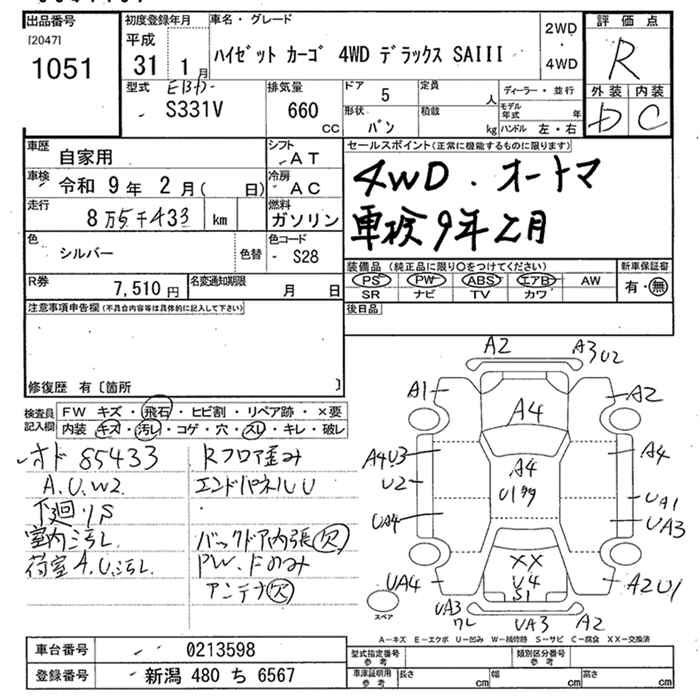 出品番号
[2047]
1051
初度登録年月
平成
31 1月
車名・グレード
ハイゼット カーゴ 4WD デラックス SAIII
2WD
・
4WD
評価点
R
外装 内装
D C
型式 EBD-
S331V
排気量
660
CC
ドア 5
定員
人
形状 バン
積載
kg
ディーラー・並行
モデル年式 年
ハンドル 左・右
車歴 自家用
シフト AT
車検 令和 9年 2月( 日)
冷房 AC
走行 8万5千433 km
燃料 ガソリン
色 シルバー
色替
色コード
S28
R券 7,510 円
名変通知期限 月 日
セールスポイント(正常に機能するものに限ります)
4WD・オートマ
車検9年2月
装備品 (純正品に限り○をつけてください)
PS PW ABS エアB AW
SR ナビ TV カワ
新車保証書
有・無
注意事項申告欄(不具合内容等は具体的に記入して下さい)
後日品
修復歴 有〔箇所 〕
検査員記入欄
FW キズ・飛石・ヒビ割・リペア跡・×要
内装 キズ・汚レ・コゲ・穴・スレ・キレ・破レ
オド 85433
A.U.W2
下廻リS
室内汚レ
荷室A.U.汚レ
Rフロア歪み
エンドパネルU
バックドア内張欠
PW.Fのみ
アンテナ欠
A2 A3 U2
A1 A4 A2
A4U3 A4 A4
U2 U1多 UA1
UA4 UA3
XX
UA4 U4 A2U1
S1
UA3 ワレ UA3 A2
スペア
A-キズ E-エクボ U-凹み W-補修跡 S-サビ C-腐食 XX-交換済
車台番号 0213598
登録番号 新潟 480 ち 6567
型式指定番号 参考
類別区分番号 参考
車庫証明用 参考
長さ cm 幅 cm 高さ cm